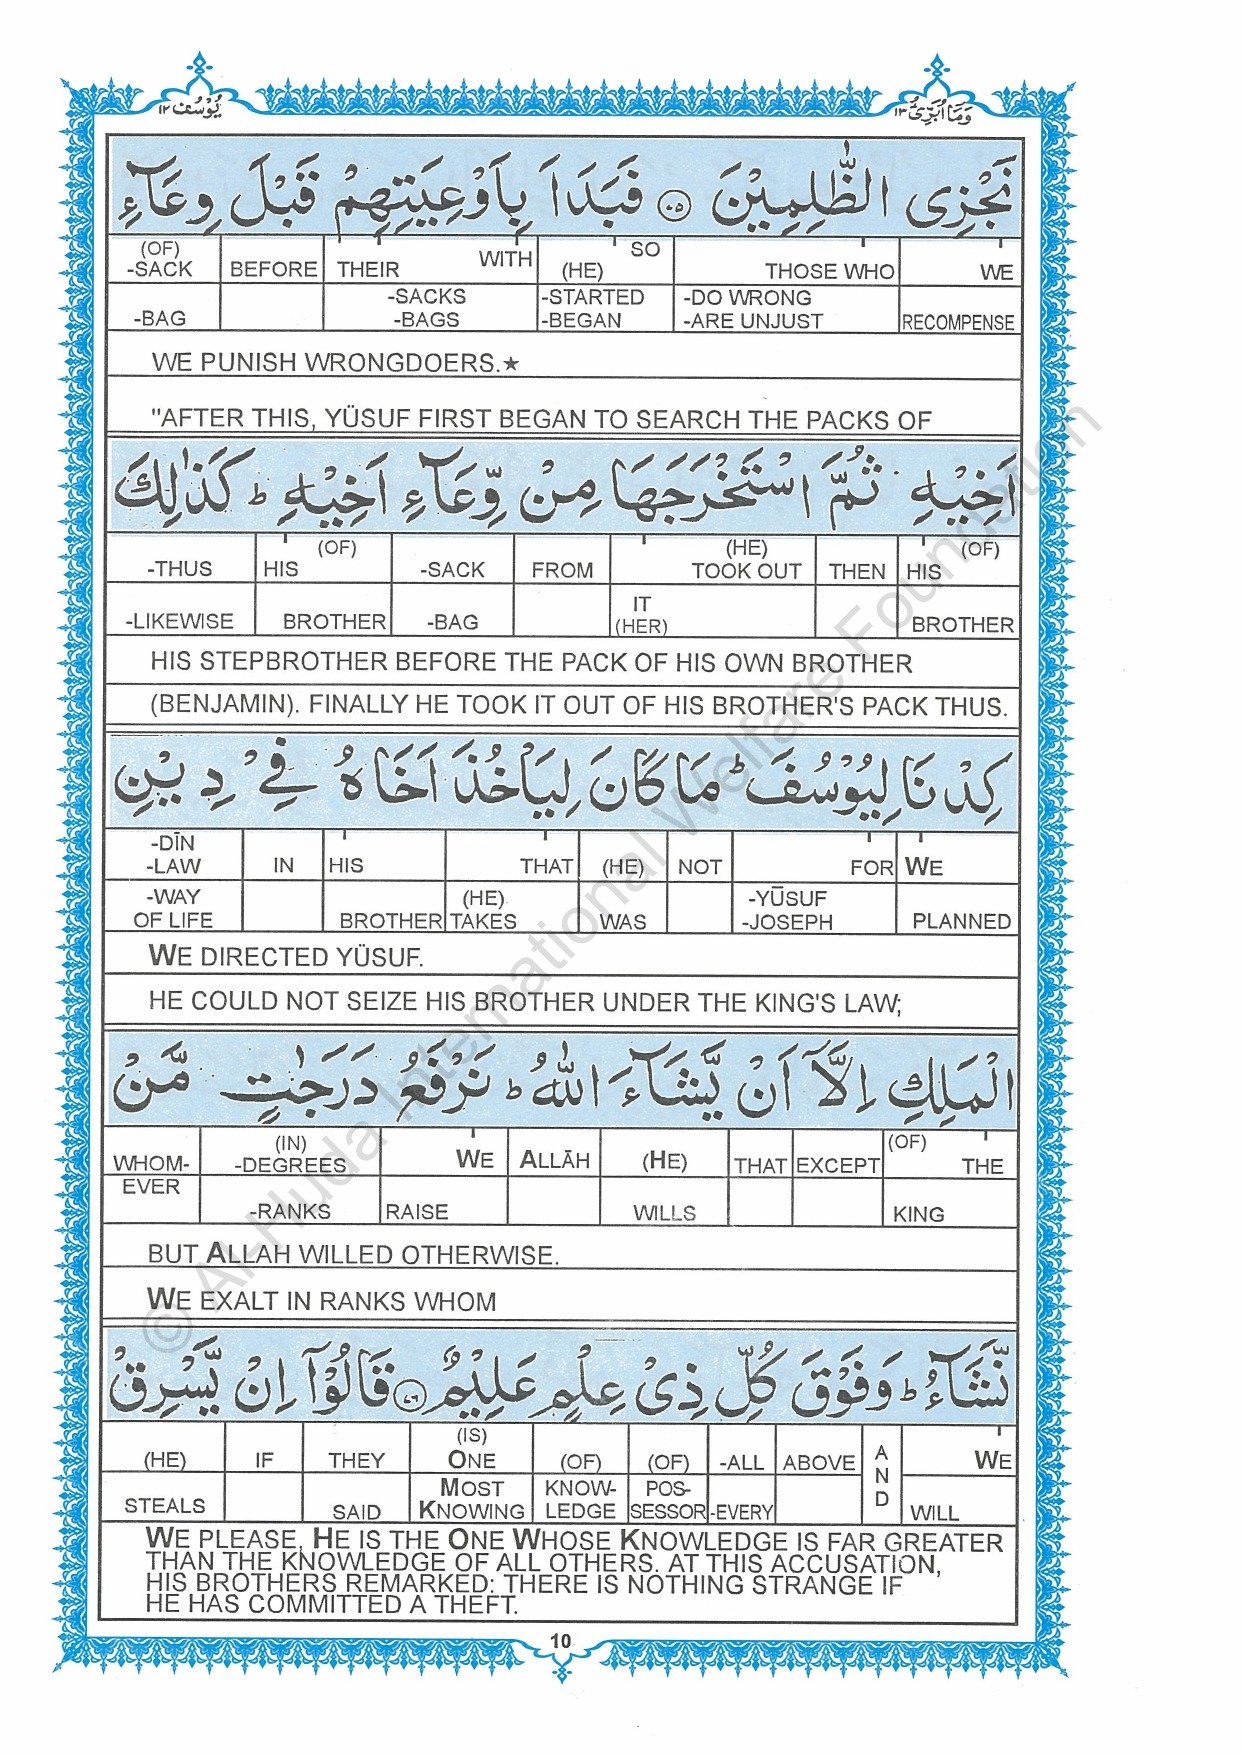 يُوْسُف ١٢
وَمَآ اُبَرِّئُ ١٣
نَجْزِى الظّٰلِمِيْنَ ۝٧٥ فَبَدَاَ بِاَوْعِيَتِهِمْ قَبْلَ وِعَآءِ
(OF) -SACK BEFORE THEIR WITH (HE) SO THOSE WHO WE
-BAG -SACKS -BAGS -STARTED -BEGAN -DO WRONG -ARE UNJUST RECOMPENSE
WE PUNISH WRONGDOERS.★
"AFTER THIS, YÜSUF FIRST BEGAN TO SEARCH THE PACKS OF
اَخِيْهِ ثُمَّ اسْتَخْرَجَهَا مِنْ وِّعَآءِ اَخِيْهِ ؕ كَذٰلِكَ
-THUS HIS (OF) -SACK FROM (HE) TOOK OUT THEN HIS (OF)
-LIKEWISE BROTHER -BAG IT (HER) BROTHER
HIS STEPBROTHER BEFORE THE PACK OF HIS OWN BROTHER
(BENJAMIN). FINALLY HE TOOK IT OUT OF HIS BROTHER'S PACK THUS.
كِدْنَا لِيُوْسُفَ ؕ مَا كَانَ لِيَاْخُذَ اَخَاهُ فِيْ دِيْنِ
-DĪN -LAW IN HIS THAT (HE) NOT FOR WE
-WAY OF LIFE BROTHER (HE) TAKES WAS -YŪSUF -JOSEPH PLANNED
WE DIRECTED YÜSUF.
HE COULD NOT SEIZE HIS BROTHER UNDER THE KING'S LAW;
الْمَلِكِ اِلَّآ اَنْ يَّشَآءَ اللّٰهُ ؕ نَرْفَعُ دَرَجٰتٍ مَّنْ
WHOM- (IN) -DEGREES WE ALLĀH (HE) THAT EXCEPT (OF) THE
EVER -RANKS RAISE WILLS KING
BUT ALLAH WILLED OTHERWISE.
WE EXALT IN RANKS WHOM
نَّشَآءُ ؕ وَفَوْقَ كُلِّ ذِيْ عِلْمٍ عَلِيْمٌ ۝٧٦ قَالُوْٓا اِنْ يَّسْرِقْ
(HE) IF THEY (IS) ONE (OF) (OF) -ALL ABOVE AND WE
STEALS SAID MOST KNOWING KNOW-LEDGE POS-SESSOR -EVERY WILL
WE PLEASE, HE IS THE ONE WHOSE KNOWLEDGE IS FAR GREATER
THAN THE KNOWLEDGE OF ALL OTHERS. AT THIS ACCUSATION,
HIS BROTHERS REMARKED: THERE IS NOTHING STRANGE IF
HE HAS COMMITTED A THEFT.
10
© Al-Huda International Welfare Foundation